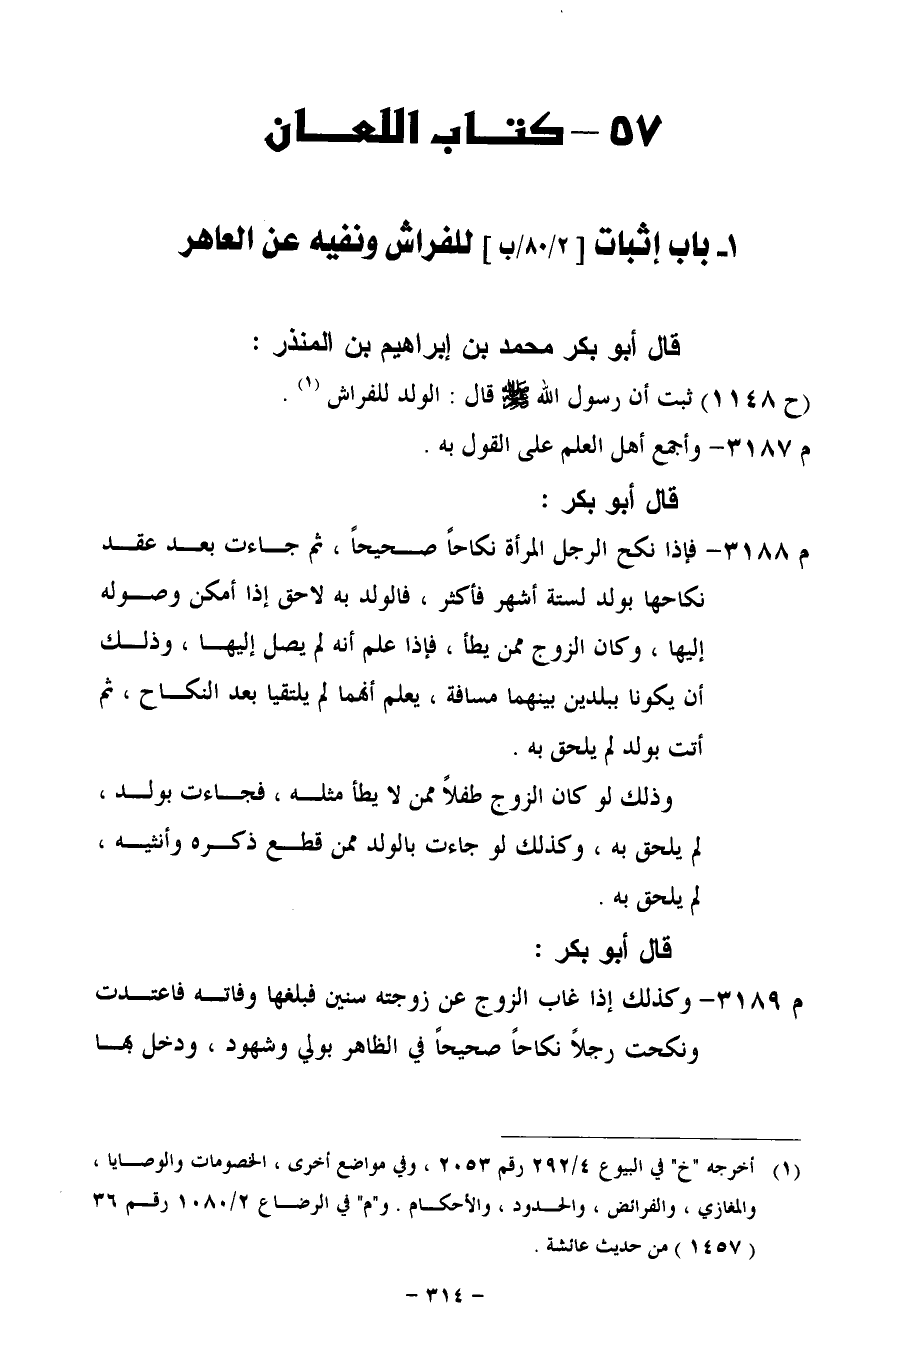 ٥٧ – كتـــاب اللعـــان
١ـ باب إثبات [ ٨٠/٢/ب ] للفراش ونفيه عن العاهر
قال أبو بكر محمد بن إبراهيم بن المنذر :
(ح ١١٤٨) ثبت أن رسول الله ﷺ قال : الولد للفراش (١) .
م ٣١٨٧– وأجمع أهل العلم على القول به .
قال أبو بكر :
م ٣١٨٨– فإذا نكح الرجل المرأة نكاحاً صـــحيحاً ، ثم جـــاءت بعـــد عقـــد
نكاحها بولد لستة أشهر فأكثر ، فالولد به لاحق إذا أمكن وصـــوله
إليها ، وكان الزوج ممن يطأ ، فإذا علم أنه لم يصل إليهـــا ، وذلـــك
أن يكونا ببلدين بينهما مسافة ، يعلم أنهما لم يلتقيا بعد النكـــاح ، ثم
أتت بولد لم يلحق به .
وذلك لو كان الزوج طفلاً ممن لا يطأ مثلـــه ، فجـــاءت بولـــد ،
لم يلحق به ، وكذلك لو جاءت بالولد ممن قطـــع ذكـــره وأنثيـــه ،
لم يلحق به .
قال أبو بكر :
م ٣١٨٩– وكذلك إذا غاب الزوج عن زوجته سنين فبلغها وفاتـــه فاعتـــدت
ونكحت رجلاً نكاحاً صحيحاً في الظاهر بولي وشهود ، ودخل بهـــا
(١) أخرجه "خ" في البيوع ٢٩٢/٤ رقم ٢٠٥٣ ، وفي مواضع أخرى ، الخصومات والوصـــايا ،
والمغازي ، والفرائض ، والحـــدود ، والأحكـــام . و"م" في الرضـــاع ١٠٨٠/٢ رقـــم ٣٦
( ١٤٥٧ ) من حديث عائشة .
– ٣١٤ –